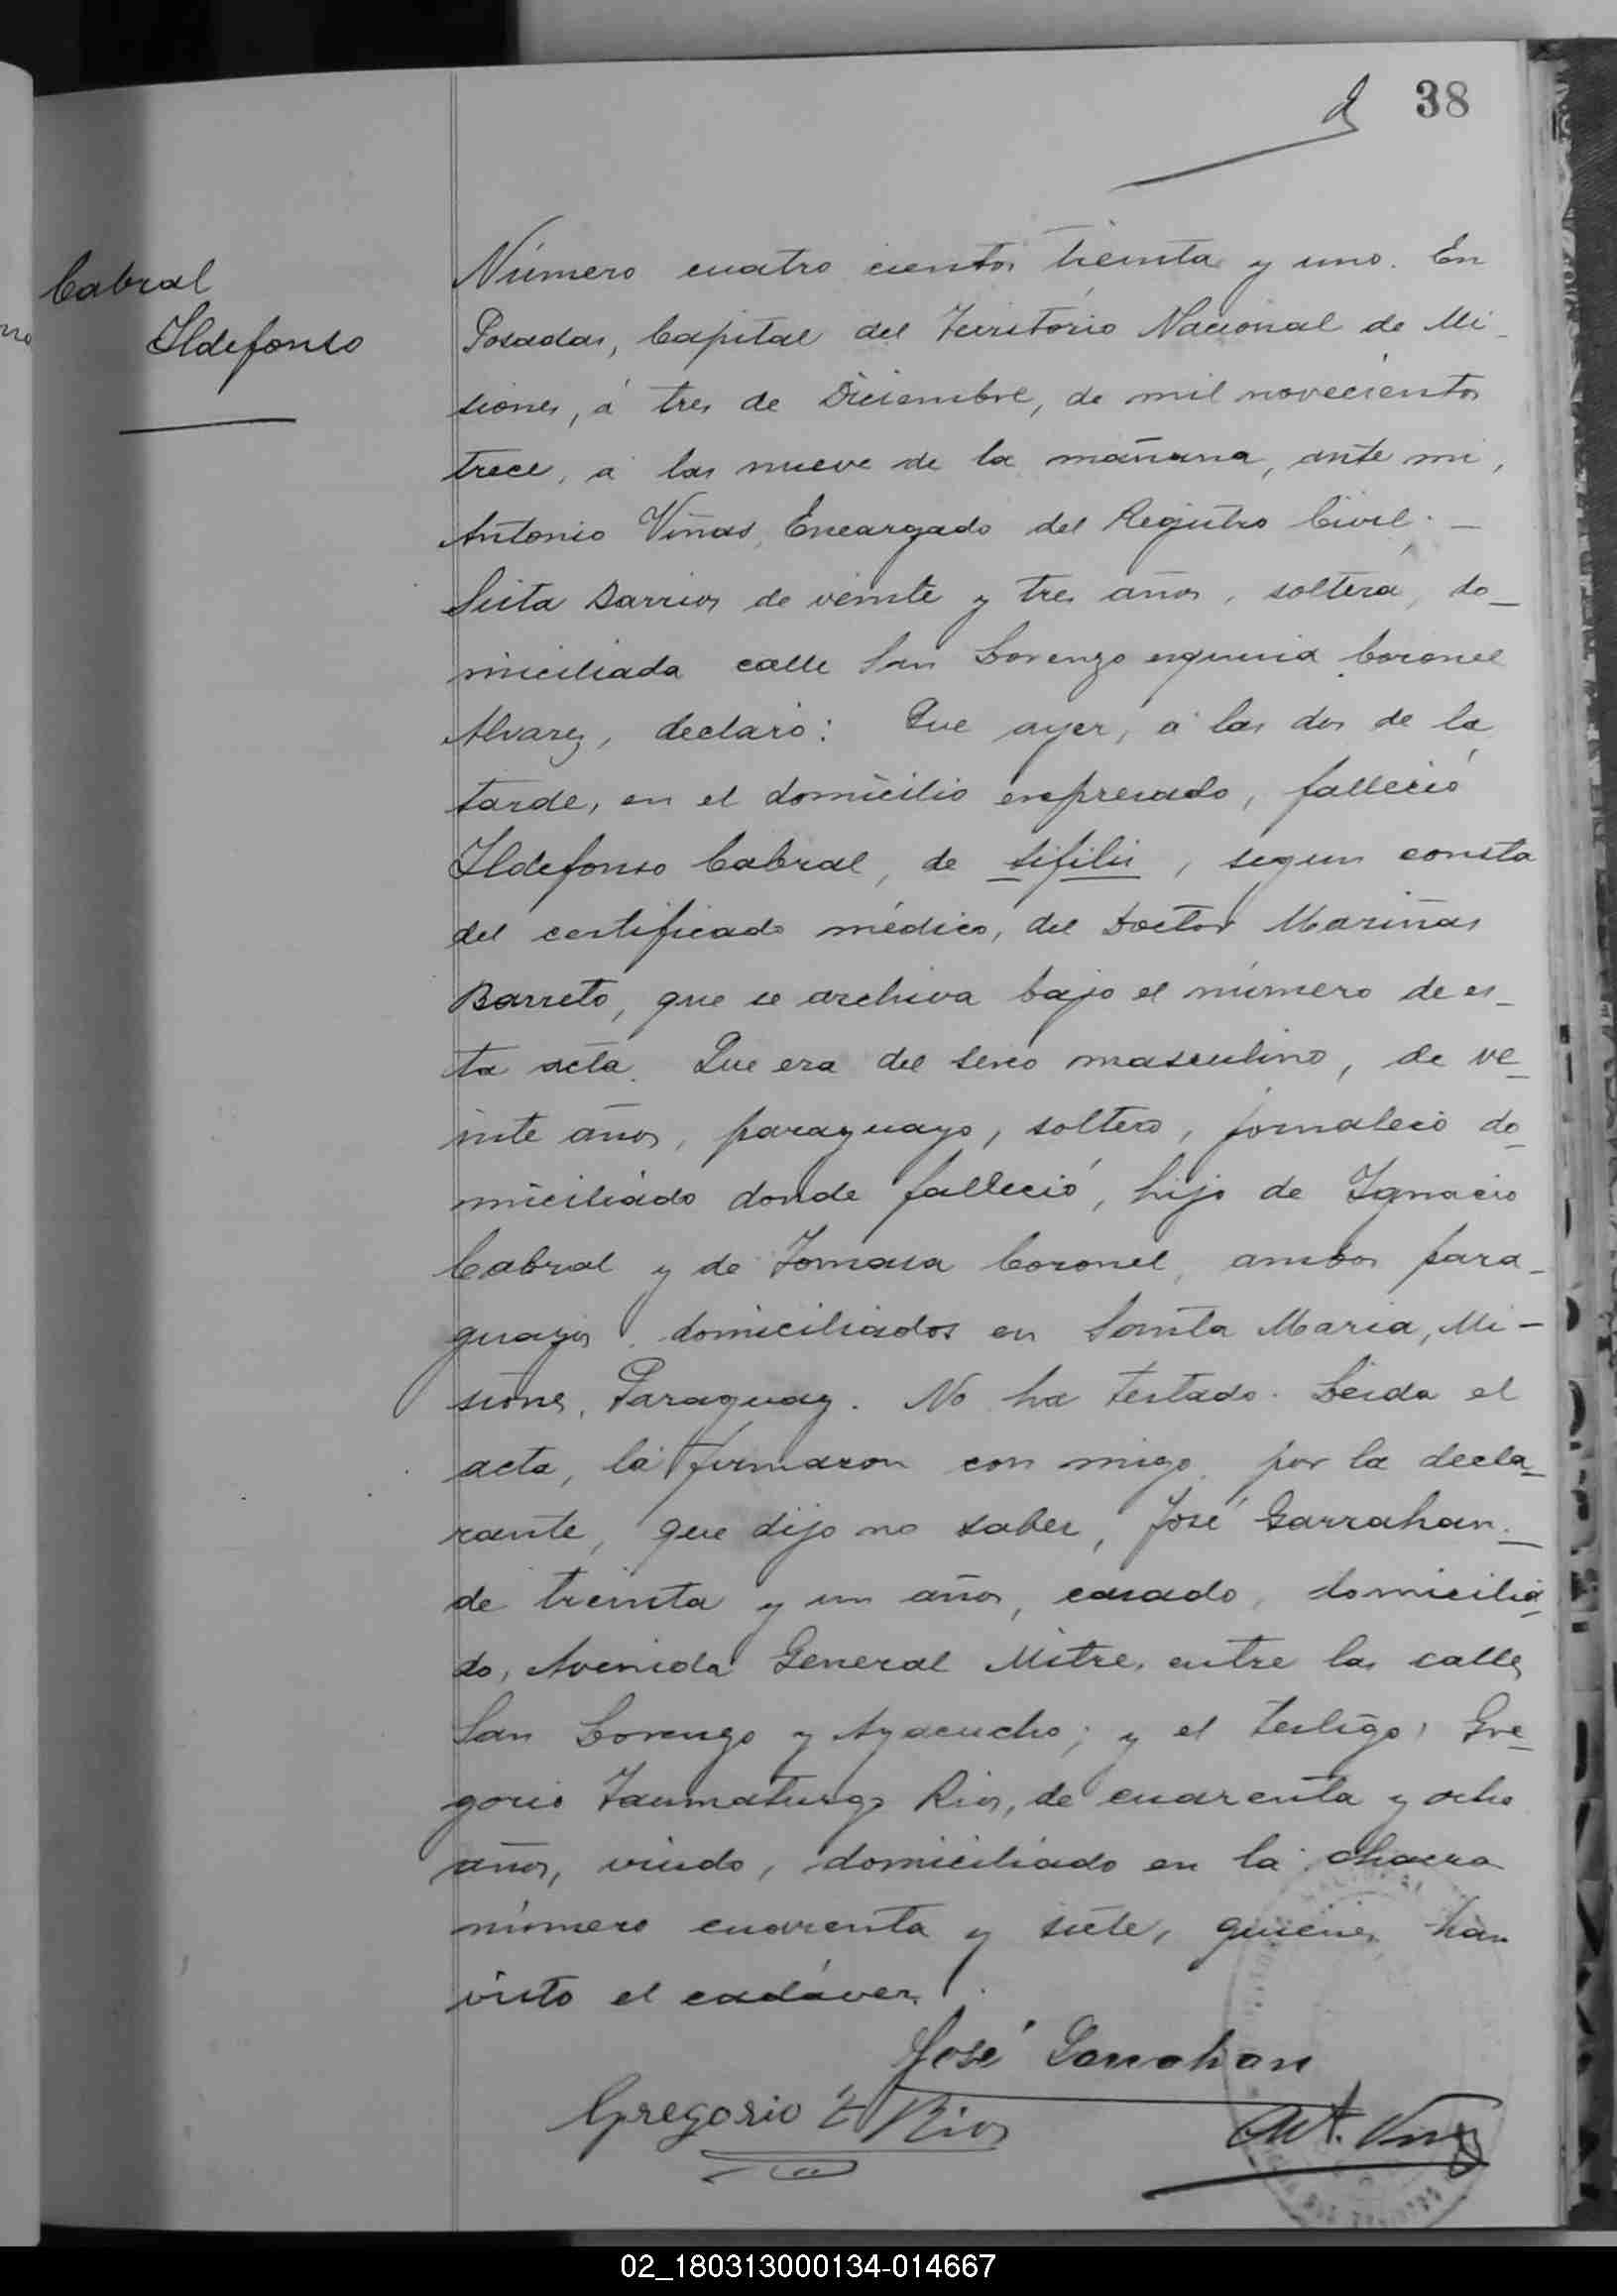 38
Cabral
Ildefonso
Número cuatro cientos treinta y uno. En
Posadas, Capital del Territorio Nacional de Mi-
siones, á tres de Diciembre, de mil novecientos
trece, á las nueve de la mañana, ante mi,
Antonio Viñas, Encargado del Registro Civil. —
Sista Barrios de veinte y tres años, soltera, do-
miciliada calle San Lorenzo esquina Coronel
Alvarez, declaró: Que ayer, á las dos de la
tarde, en el domicilio expresado, falleció
Ildefonso Cabral, de sifilis, segun consta
del certificado médico, del Doctor Mariñas
Barreto, que se archiva bajo el número de es-
ta acta. Que era del sexo masculino, de ve-
inte años, paraguayo, soltero, jornalero do-
miciliado donde falleció, hijo de Ignacio
Cabral y de Tomasa Coronel, ambos para-
guayos, domiciliados en Santa Maria, Mi-
siones, Paraguay. No ha testado. Leida el
acta, la firmaron con migo, por la decla-
rante, que dijo no saber, José Garrahan.—
de treinta y un años, casado, domicilia-
do, Avenida General Mitre, entre las calles
San Lorenzo y Ayacucho; y el testigo, Gre-
gorio Taumaturgo Rios, de cuarenta y ocho
años, viudo, domiciliado en la chacra
número cuarenta y siete, quienes han
visto el cadáver.
José Garrahan
Gregorio T Rios
Ant. Viñas
02_180313000134-014667